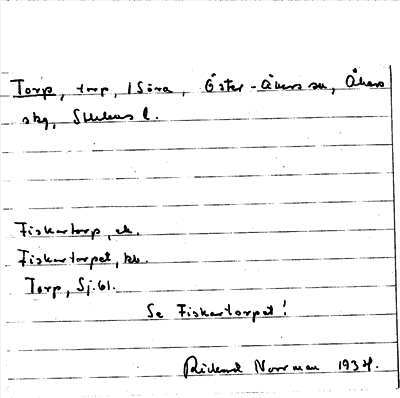 Torp, torp, Söra, Öster-Åkers sn, Åkers
skg, Sthlms l.
Fiskartorp, ek.
Fiskartorpet, kb.
Torp, Sj.61.
Se Fiskartorpet!
Rickard Norrman 1934.